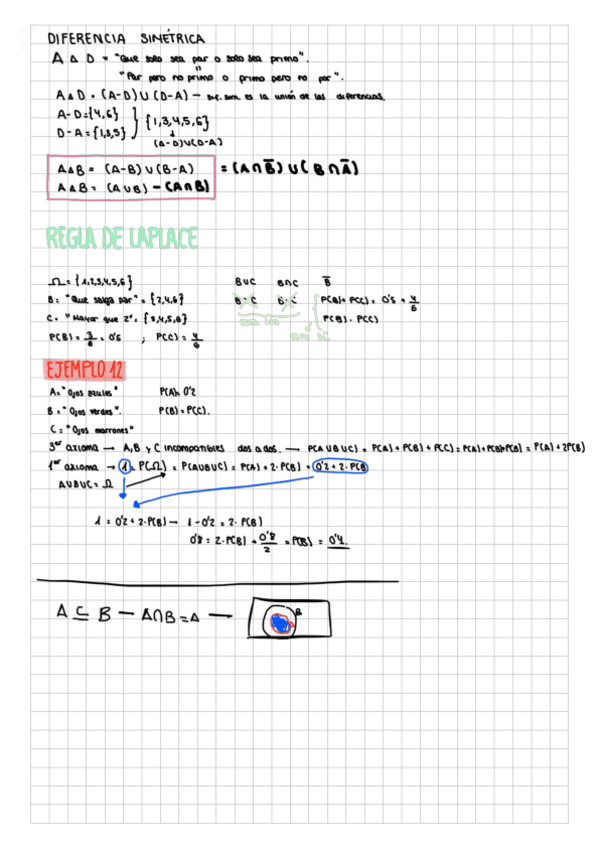 DIFERENCIA SIMÉTRICA
A △ D = "Que solo sea par o solo sea primo".
"Par pero no primo o primo pero no par".
A△D = (A-D)∪(D-A) — Dif. sim. es la unión de las diferencias.
A-D={4,6}
D-A={1,3,5}
{1,3,4,5,6}
(A-D)∪(D-A)
A△B = (A-B)∪(B-A) = (A∩B̅)∪(B∩A̅)
A△B = (A∪B) - (A∩B)
REGLA DE LAPLACE
Ω = {1,2,3,4,5,6} B∪C B∩C B̅
B = "Que salga par" = {2,4,6} B+C B·C P(B)+P(C) = 0'5 + 4/6
C = "Mayor que 2" = {3,4,5,6} P(B)·P(C)
P(B) = 3/6 = 0'5 ; P(C) = 4/6
EJEMPLO 12
A = "Ojos azules" P(A) = 0'2
B = "Ojos verdes". P(B) = P(C).
C = "Ojos marrones"
3er axioma → A, B y C incompatibles dos a dos. → P(A∪B∪C) = P(A)+P(B)+P(C) = P(A)+P(B)+P(B) = P(A)+2P(B)
1er axioma → 1 = P(Ω) = P(A∪B∪C) = P(A)+2·P(B) = 0'2+2·P(B)
A∪B∪C = Ω
1 = 0'2+2·P(B) → 1-0'2 = 2·P(B)
0'8 = 2·P(B) → 0'8/2 = P(B) = 0'4.
A ⊆ B — A∩B = A — B